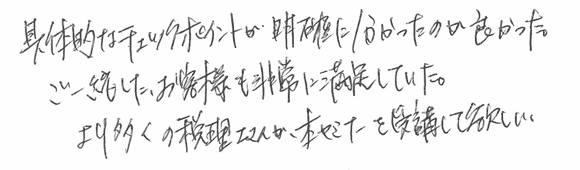 具体的なチェックポイントが明確に分かったのが良かった。
ご一緒した、お客様も非常に満足していた。
より多くの税理士さんが、本セミナーを受講して欲しい。